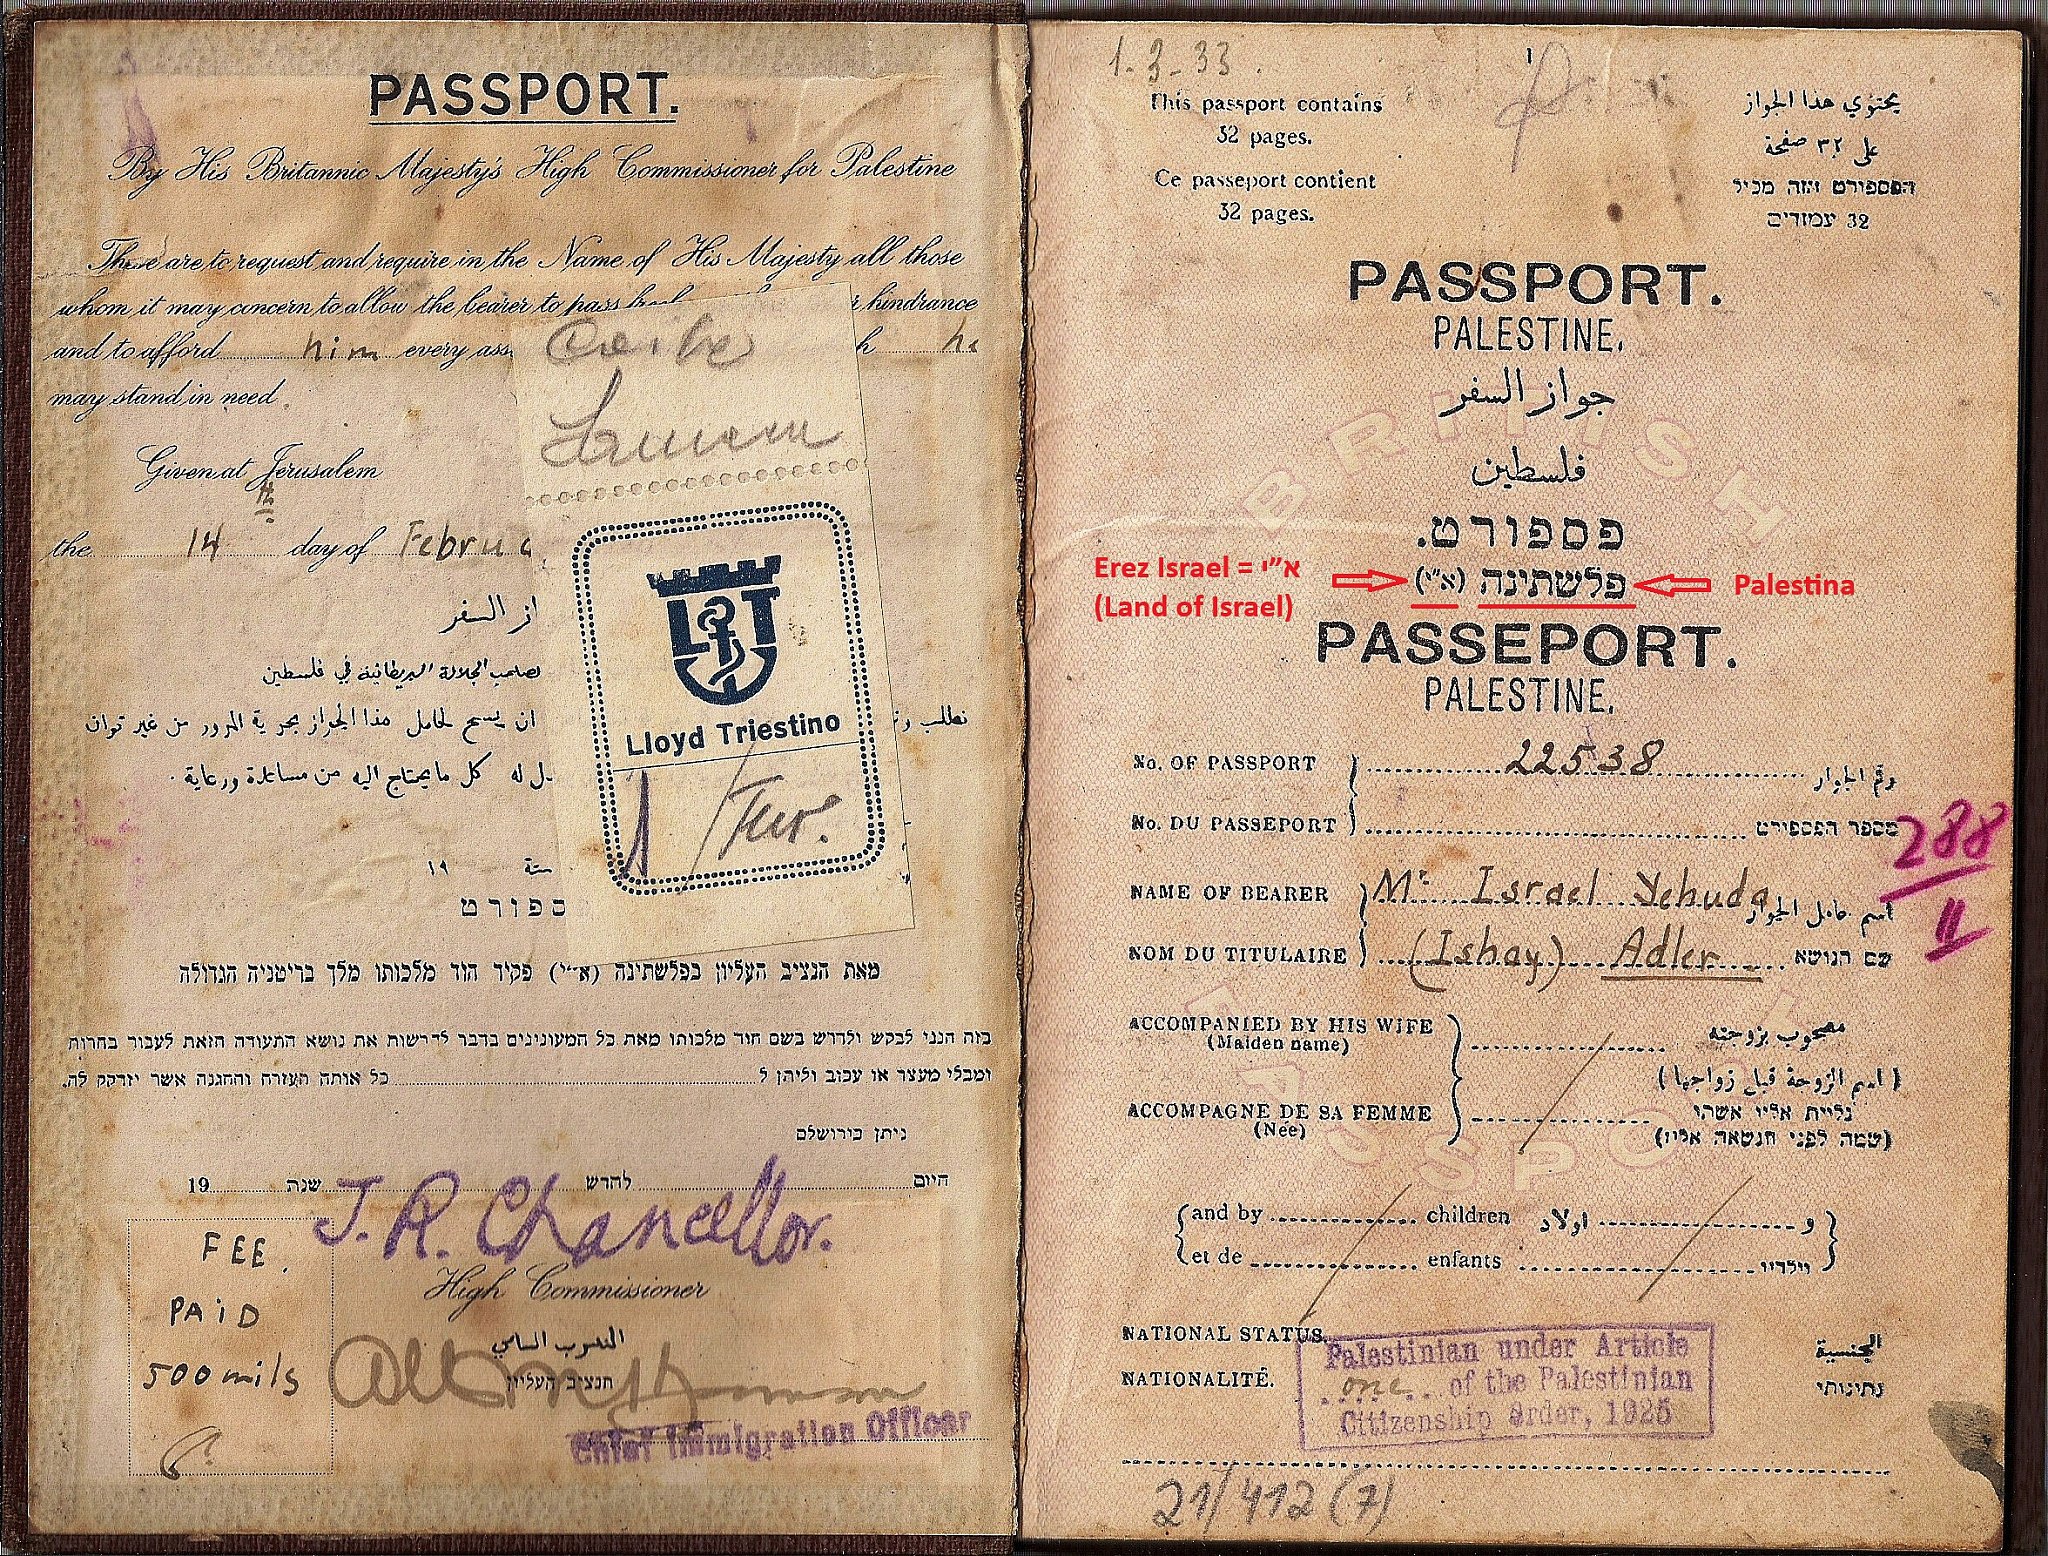 PASSPORT.
By His Britannic Majesty's High Commissioner for Palestine
These are to request and require in the Name of His Majesty all those
whom it may concern to allow the bearer to pass hindrance
and to afford him every ass
may stand in need.
Given at Jerusalem
the 14th day of Februa
از السفر
لصاحب الجلالة البريطانية في فلسطين
نطلب ان يسمح لحامل هذا الجواز بحرية المرور من غير توان
له كل ما يحتاج اليه من مساعدة ورعاية .
سنة ١٩
ספורט
מאת הנציב העליון בפלשתינה (א״י) פקיד הוד מלכותו מלך בריטניה הגדולה
בזה הנני לבקש ולדרוש בשם הוד מלכותו מאת כל המעונינים בדבר להרשות את נושא התעודה הזאת לעבור בחרות
ומבלי מעצר או עכוב וליתן ל כל אותה העזרה וההגנה אשר יזדקק לה.
ניתן בירושלם
היום לחדש שנת 19
J. R. Chancellor.
High Commissioner
المندوب السامي
הנציב העליון
Chief Immigration Officer
FEE
PAID
500 mils
LT
Lloyd Triestino
1-3-33.
1
This passport contains
32 pages.
Ce passeport contient
32 pages.
يحتوي هذا الجواز
على ٣٢ صفحة
הפספורט הזה מכיל
32 עמודים
PASSPORT.
PALESTINE.
جواز السفر
فلسطين
פספורט.
פלשתינה (א״י)
Erez Israel = א״י
(Land of Israel)
Palestina
PASSEPORT.
PALESTINE.
BRITISH
PASSPORT
No. OF PASSPORT 22538 رقم الجواز
No. DU PASSEPORT מספר הפספורט
288
II
NAME OF BEARER Mr. Israel Yehuda اسم حامل الجواز
NOM DU TITULAIRE (Ishay) Adler שם הנושא
ACCOMPANIED BY HIS WIFE مصحوب بزوجته
(Maiden name) (اسم الزوجة قبل زواجها)
ACCOMPAGNE DE SA FEMME נלוית אליו אשתו
(Née) (שמה לפני הנשאה אליו)
and by children اولاد و
et de enfants וילדיו
NATIONAL STATUS. الجنسية
NATIONALITÉ. נתינותי
Palestinian under Article
one of the Palestinian
Citizenship Order, 1925
21/412 (7)